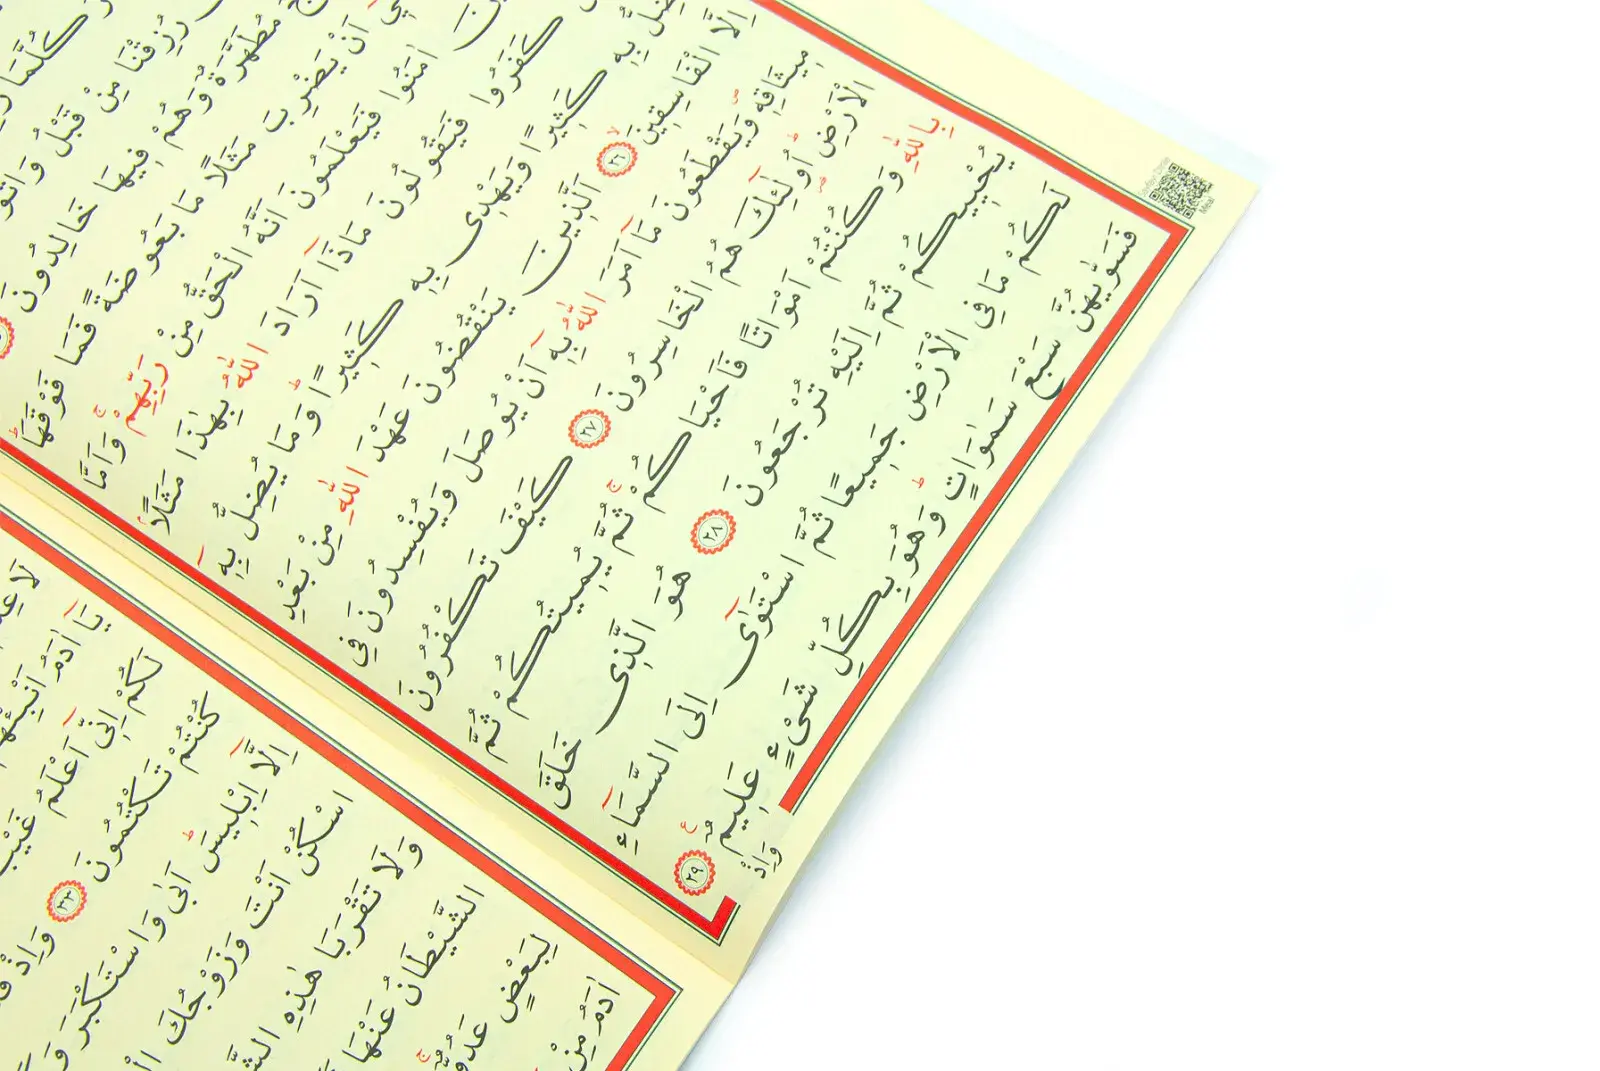 كُلَّمَا
رُزِقْنَا مِنْ قَبْلُ
مُطَهَّرَةٌ وَهُمْ فِيهَا خَالِدُونَ
اَنْ يَضْرِبَ مَثَلًا مَا بَعُوضَةً فَمَا فَوْقَهَا
اٰمَنُوا فَيَعْلَمُونَ اَنَّهُ الْحَقُّ مِنْ رَبِّهِمْ وَاَمَّا
كَفَرُوا فَيَقُولُونَ مَاذَٓا اَرَادَ اللّٰهُ بِهٰذَا مَثَلًا
بِهِ كَثِيرًا وَيَهْدِى بِهِ كَثِيرًا وَمَا يُضِلُّ بِهِٓ
اِلَّا الْفَاسِقِينَ ٢٦ اَلَّذِينَ يَنْقُضُونَ عَهْدَ اللّٰهِ مِنْ بَعْدِ
مِيثَاقِهِ وَيَقْطَعُونَ مَٓا اَمَرَ اللّٰهُ بِهِٓ اَنْ يُوصَلَ وَيُفْسِدُونَ فِى
الْاَرْضِ اُولٰٓئِكَ هُمُ الْخَاسِرُونَ ٢٧ كَيْفَ تَكْفُرُونَ
بِاللّٰهِ وَكُنْتُمْ اَمْوَاتًا فَاَحْيَاكُمْ ثُمَّ يُمِيتُكُمْ ثُمَّ
يُحْيِيكُمْ ثُمَّ اِلَيْهِ تُرْجَعُونَ ٢٨ هُوَ الَّذِى خَلَقَ
لَكُمْ مَا فِى الْاَرْضِ جَمِيعًا ثُمَّ اسْتَوٰٓى اِلَى السَّمَٓاءِ
فَسَوّٰيهُنَّ سَبْعَ سَمٰوَاتٍ وَهُوَ بِكُلِّ شَىْءٍ عَلِيمٌ ٢٩
وَاِذْ
يَٓا اٰدَمُ
لَكُمْ اِنِّٓى اَعْلَمُ غَيْبَ
كُنْتُمْ تَكْتُمُونَ ٣٣ وَاِذْ
اِلَّٓا اِبْلِيسَ اَبٰى وَاسْتَكْبَرَ
اسْكُنْ اَنْتَ وَزَوْجُكَ
وَلَا تَقْرَبَا هٰذِهِ
الشَّيْطَانُ عَنْهَا
لِبَعْضٍ عَدُوٌّ
اٰدَمُ مِنْ